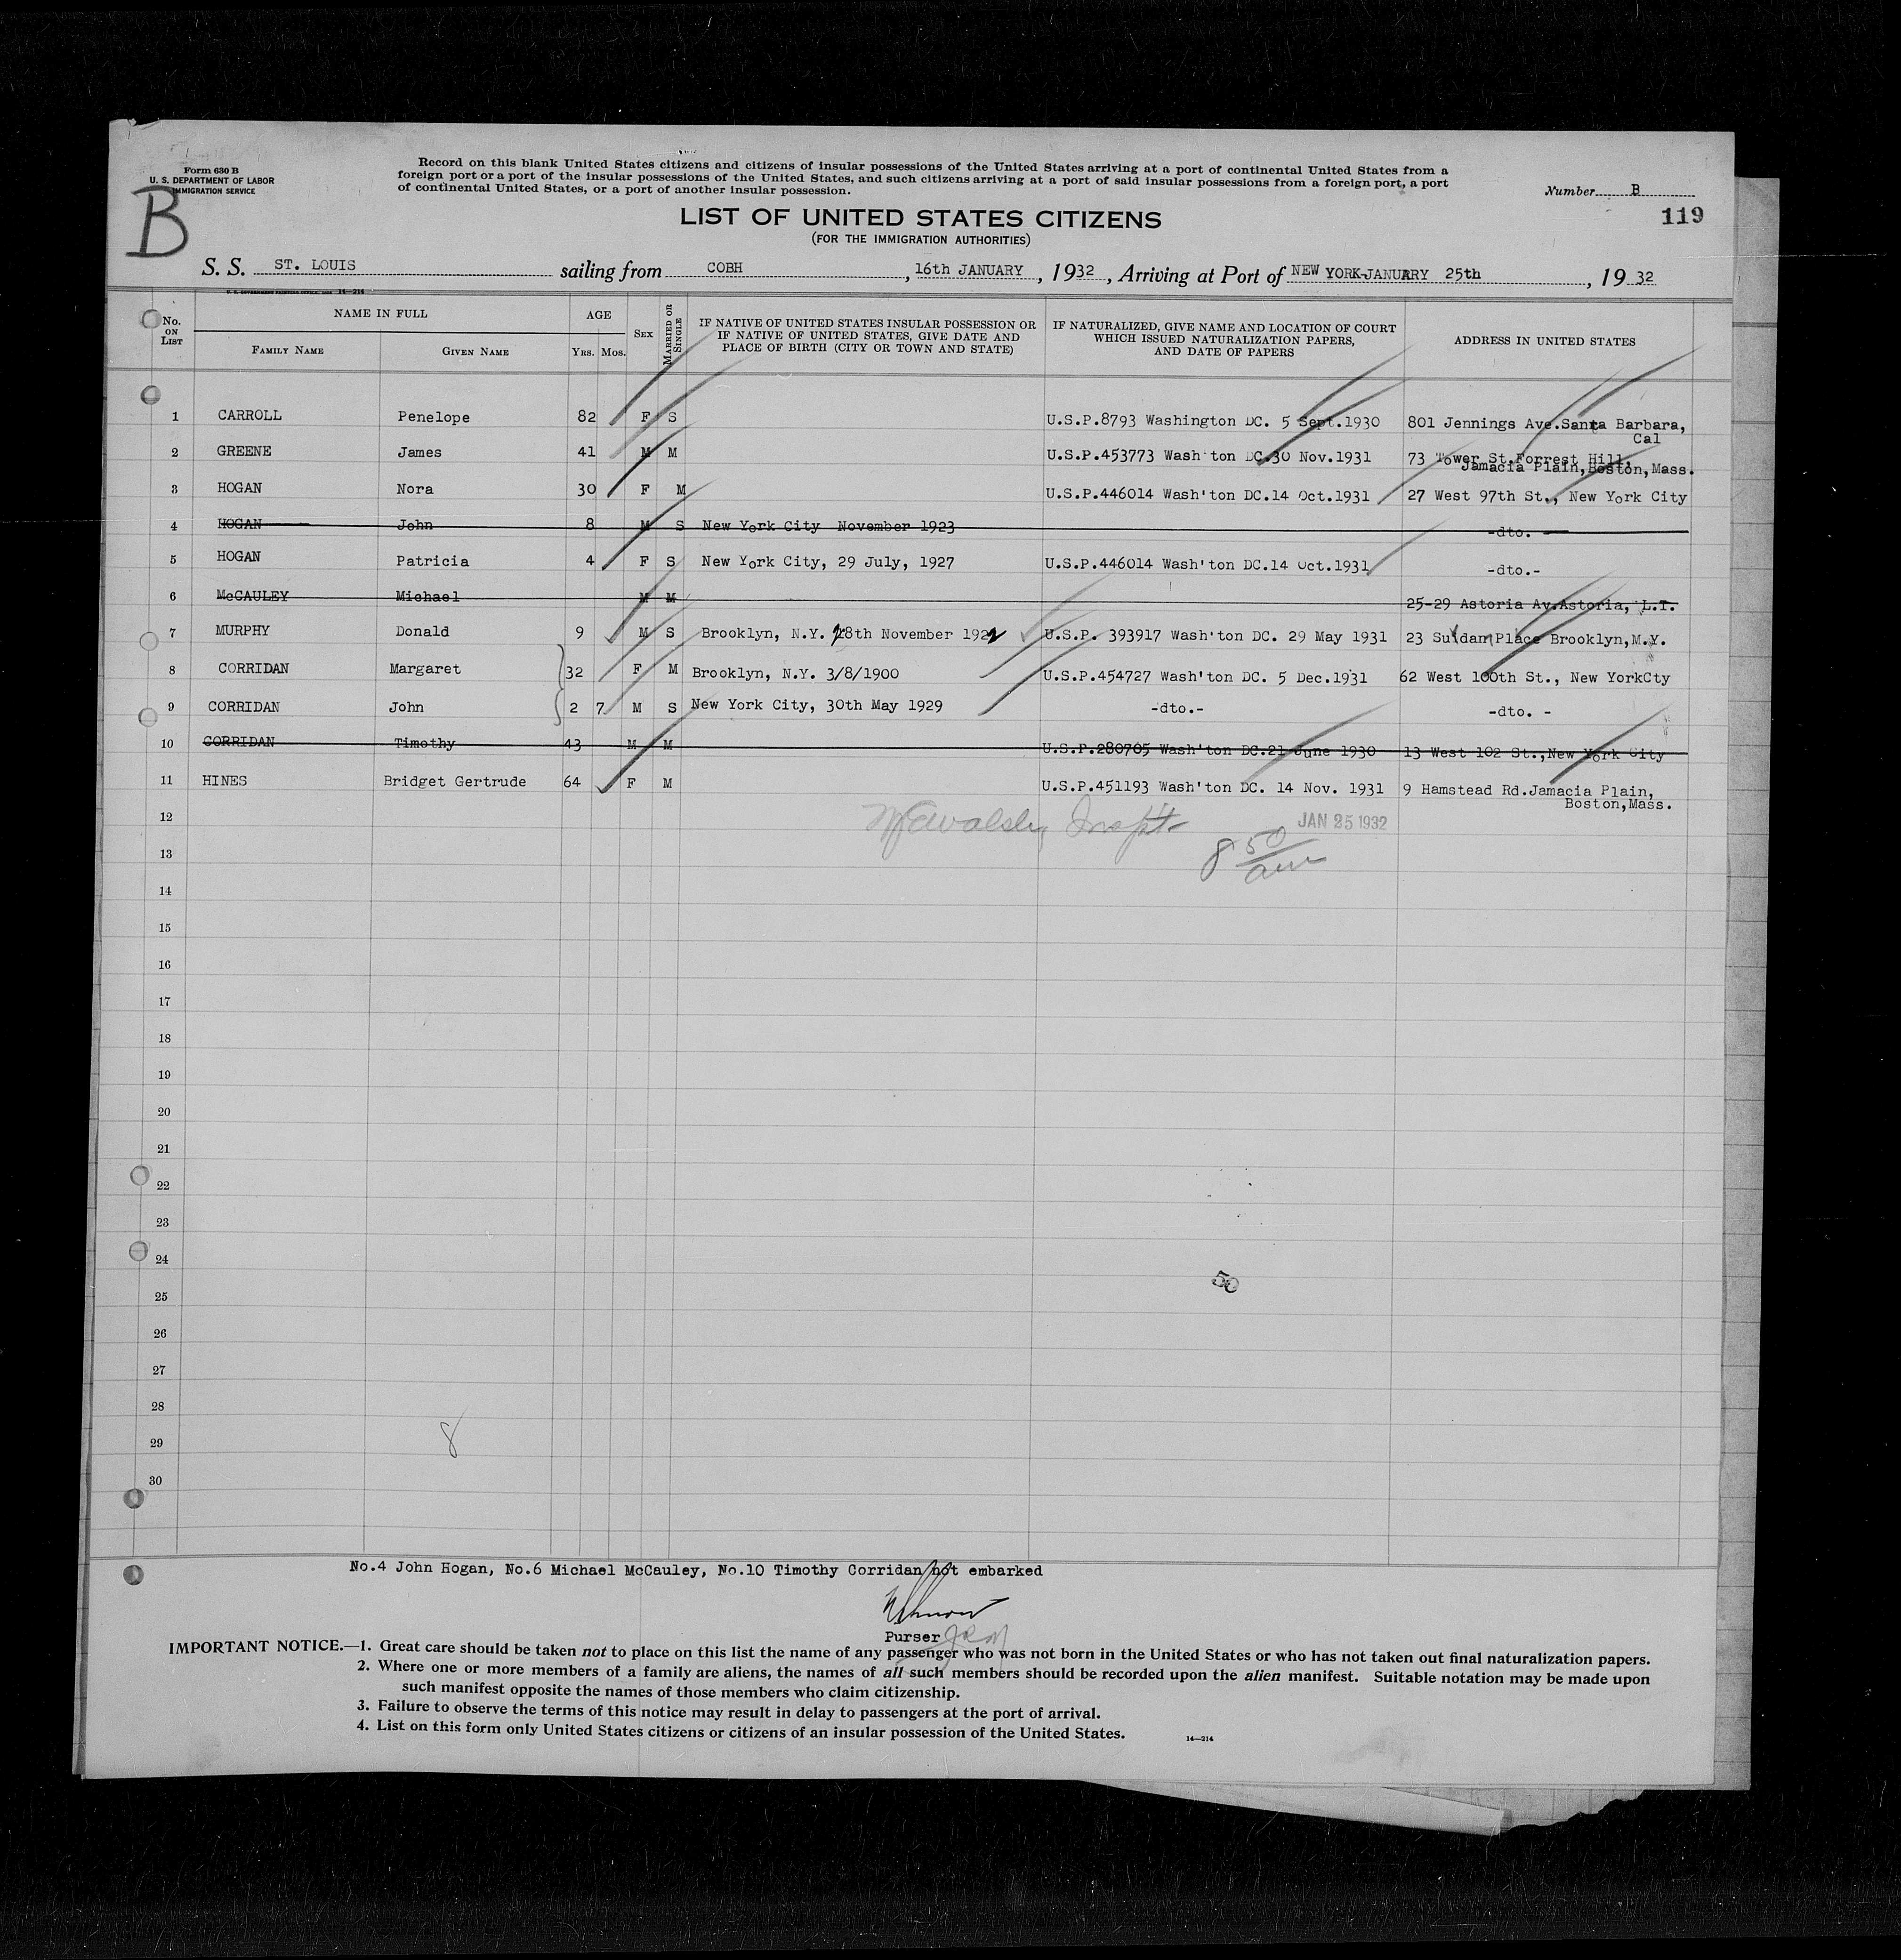 Form 630 B
U. S. DEPARTMENT OF LABOR
IMMIGRATION SERVICE
B
Record on this blank United States citizens and citizens of insular possessions of the United States arriving at a port of continental United States from a
foreign port or a port of the insular possessions of the United States, and such citizens arriving at a port of said insular possessions from a foreign port, a port
of continental United States, or a port of another insular possession.
Number B
119
LIST OF UNITED STATES CITIZENS
(FOR THE IMMIGRATION AUTHORITIES)
S. S. ST. LOUIS sailing from COBH , 16th JANUARY , 1932 , Arriving at Port of NEW YORK-JANUARY 25th , 19 32
14—214
No. ON LIST
NAME IN FULL
FAMILY NAME GIVEN NAME
AGE
YRS. MOS.
SEX
MARRIED OR SINGLE
IF NATIVE OF UNITED STATES INSULAR POSSESSION OR
IF NATIVE OF UNITED STATES, GIVE DATE AND
PLACE OF BIRTH (CITY OR TOWN AND STATE)
IF NATURALIZED, GIVE NAME AND LOCATION OF COURT
WHICH ISSUED NATURALIZATION PAPERS,
AND DATE OF PAPERS
ADDRESS IN UNITED STATES
1 CARROLL Penelope 82 F S U.S.P.8793 Washington DC. 5 Sept.1930 801 Jennings Ave.Santa Barbara,
Cal
2 GREENE James 41 M M U.S.P.453773 Wash'ton DC.30 Nov.1931 73 Tower St.Forrest Hill,
Jamacia Plain,Boston,Mass.
3 HOGAN Nora 30 F M U.S.P.446014 Wash'ton DC.14 Oct.1931 27 West 97th St., New York City
4 HOGAN John 8 M S New York City November 1923 -dto. -
5 HOGAN Patricia 4 F S New York City, 29 July, 1927 U.S.P.446014 Wash'ton DC.14 Oct.1931 -dto.-
6 McCAULEY Michael M M 25-29 Astoria Av.Astoria, L.I.
7 MURPHY Donald 9 M S Brooklyn, N.Y. 28th November 1922 U.S.P. 393917 Wash'ton DC. 29 May 1931 23 Suydam Place Brooklyn,M.Y.
8 CORRIDAN Margaret 32 F M Brooklyn, N.Y. 3/8/1900 U.S.P.454727 Wash'ton DC. 5 Dec.1931 62 West 100th St., New YorkCty
9 CORRIDAN John 2 7 M S New York City, 30th May 1929 -dto.- -dto. -
10 CORRIDAN Timothy 43 M M U.S.P.280705 Wash'ton DC.21 June 1930 13 West 102 St.,New York City
11 HINES Bridget Gertrude 64 F M U.S.P.451193 Wash'ton DC. 14 Nov. 1931 9 Hamstead Rd.Jamacia Plain,
Boston,Mass.
12 JAN 25 1932
13 8 50 am
14
15
16
17
18
19
20
21
22
23
24
50
25
26
27
28
29 8
30
No.4 John Hogan, No.6 Michael McCauley, No.10 Timothy Corridan not embarked
Purser
IMPORTANT NOTICE.—1. Great care should be taken not to place on this list the name of any passenger who was not born in the United States or who has not taken out final naturalization papers.
2. Where one or more members of a family are aliens, the names of all such members should be recorded upon the alien manifest. Suitable notation may be made upon
such manifest opposite the names of those members who claim citizenship.
3. Failure to observe the terms of this notice may result in delay to passengers at the port of arrival.
4. List on this form only United States citizens or citizens of an insular possession of the United States.
14—214